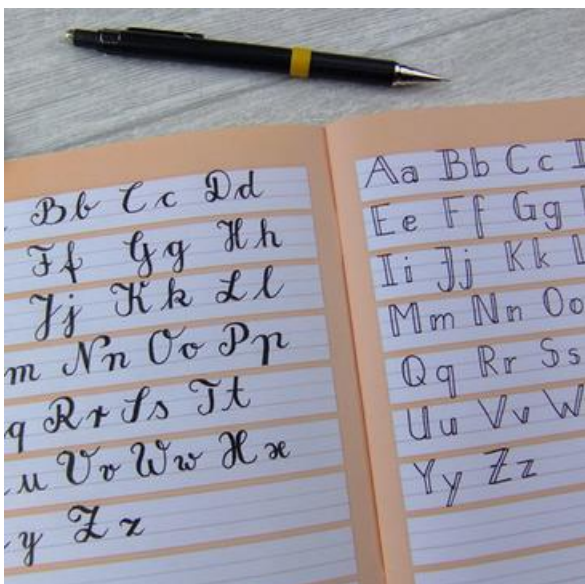 Bb Cc Dd
Ff Gg Hh
Jj Kk Ll
m Nn Oo Pp
q Rr Ss Tt
u Vv Ww Xx
y Zz
Aa Bb Cc
Ee Ff Gg
Ii Jj Kk L
Mm Nn Oo
Qq Rr Ss
Uu Vv W
Yy Zz